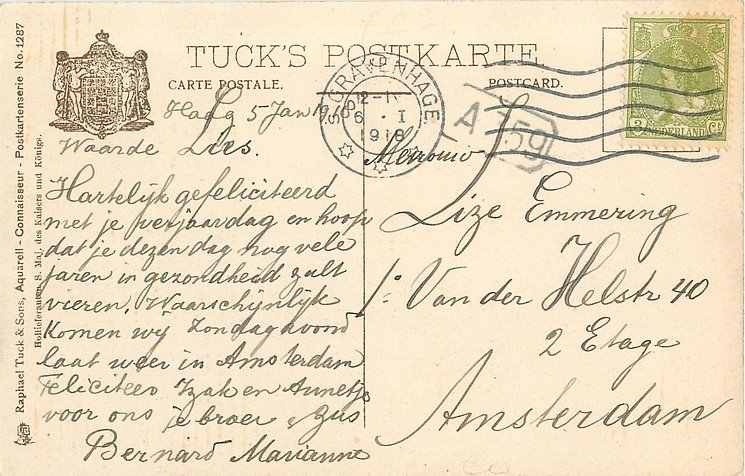 TUCK'S POSTKARTE
CARTE POSTALE.
POSTCARD.
Raphael Tuck & Sons, Aquarell - Connaisseur - Postkartenserie No. 1287
Hoflieferanten S. Maj. des Kaisers und Königs.
'S GRAVENHAGE
12-1
6 . I
1918
A 59
3 NEDERLAND Ct
Haag 5 Jan
Waarde Lies.
Hartelijk gefeliciteerd
met je verjaardag en hoop
dat je dezen dag nog vele
jaren in gezondheid zult
vieren. Waarschijnlijk
komen wij Zondagavond
laat weer in Amsterdam
Feliciteer Izak en Annetje
voor ons je broer Zus
Bernard Marianne
Lize Emmering
Van der Helstr 40
2 Etage
Amsterdam